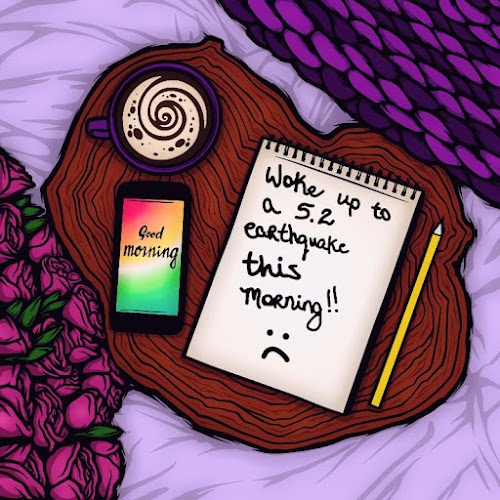 Good
morning
Woke up to
a 5.2
earthquake
this
Morning!!